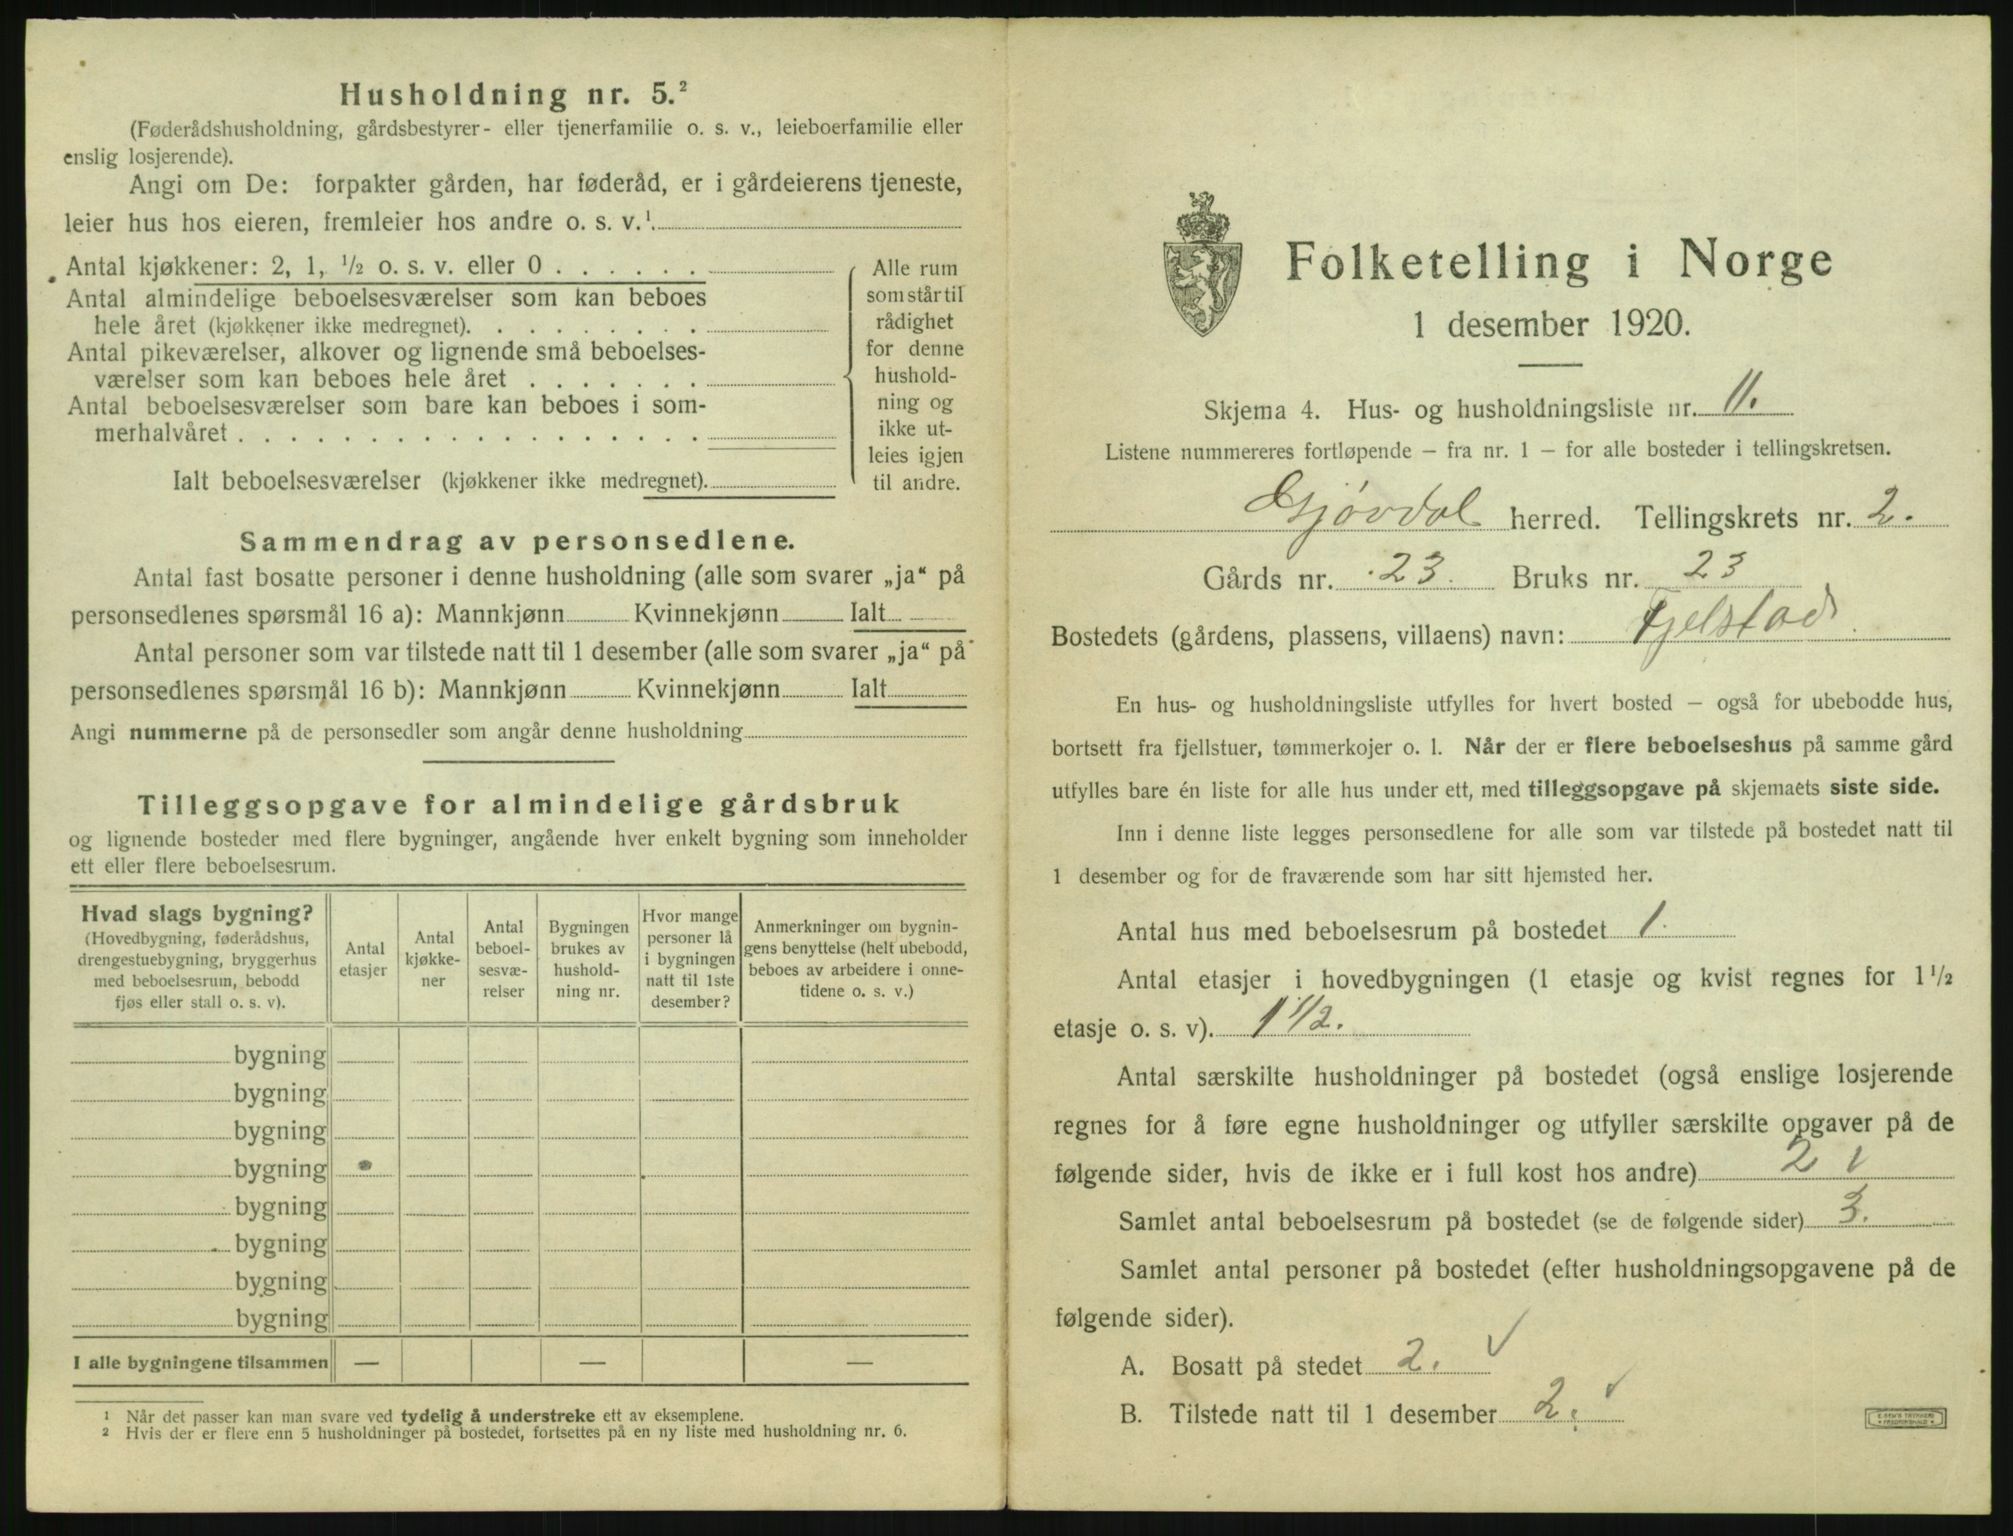 Husholdning nr. 5.²
(Føderådshusholdning, gårdsbestyrer- eller tjenerfamilie o. s. v., leieboerfamilie eller
enslig losjerende).
Angi om De: forpakter gården, har føderåd, er i gårdeierens tjeneste,
leier hus hos eieren, fremleier hos andre o. s. v.¹
Antal kjøkkener: 2, 1, ½ o. s. v. eller 0 . . . . . .
Antal almindelige beboelsesværelser som kan beboes
hele året (kjøkkener ikke medregnet). . . . . . . . .
Antal pikeværelser, alkover og lignende små beboelses-
værelser som kan beboes hele året . . . . . . .
Antal beboelsesværelser som bare kan beboes i som-
merhalvåret . . . . . . . . . . . . . . . . . .
Ialt beboelsesværelser (kjøkkener ikke medregnet).
Alle rum
som står til
rådighet
for denne
hushold-
ning og
ikke ut-
leies igjen
til andre.
Sammendrag av personsedlene.
Antal fast bosatte personer i denne husholdning (alle som svarer „ja“ på
personsedlenes spørsmål 16 a): Mannkjønn Kvinnekjønn Ialt
Antal personer som var tilstede natt til 1 desember (alle som svarer „ja“ på
personsedlenes spørsmål 16 b): Mannkjønn Kvinnekjønn Ialt
Angi nummerne på de personsedler som angår denne husholdning
Tilleggsopgave for almindelige gårdsbruk
og lignende bosteder med flere bygninger, angående hver enkelt bygning som inneholder
ett eller flere beboelsesrum.
Hvad slags bygning?
(Hovedbygning, føderådshus,
drengestuebygning, bryggerhus
med beboelsesrum, bebodd
fjøs eller stall o. s. v).
Antal
etasjer
Antal
kjøkke-
ner
Antal
beboel-
sesvæ-
relser
Bygningen
brukes av
hushold-
ning nr.
Hvor mange
personer lå
i bygningen
natt til 1ste
desember?
Anmerkninger om bygnin-
gens benyttelse (helt ubebodd,
beboes av arbeidere i onne-
tidene o. s. v.)
bygning
bygning
bygning
bygning
bygning
bygning
bygning
bygning
I alle bygningene tilsammen — — —
¹ Når det passer kan man svare ved tydelig å understreke ett av eksemplene.
² Hvis der er flere enn 5 husholdninger på bostedet, fortsettes på en ny liste med husholdning nr. 6.
Folketelling i Norge
1 desember 1920.
Skjema 4. Hus- og husholdningsliste nr. 11.
Listene nummereres fortløpende – fra nr. 1 – for alle bosteder i tellingskretsen.
Gjøvdal herred. Tellingskrets nr. 2.
Gårds nr. 23. Bruks nr. 23
Bostedets (gårdens, plassens, villaens) navn: Fjelstad
En hus- og husholdningsliste utfylles for hvert bosted – også for ubebodde hus,
bortsett fra fjellstuer, tømmerkojer o. l. Når der er flere beboelseshus på samme gård
utfylles bare én liste for alle hus under ett, med tilleggsopgave på skjemaets siste side.
Inn i denne liste legges personsedlene for alle som var tilstede på bostedet natt til
1 desember og for de fraværende som har sitt hjemsted her.
Antal hus med beboelsesrum på bostedet 1.
Antal etasjer i hovedbygningen (1 etasje og kvist regnes for 1½
etasje o. s. v). 1 1/2.
Antal særskilte husholdninger på bostedet (også enslige losjerende
regnes for å føre egne husholdninger og utfyller særskilte opgaver på de
følgende sider, hvis de ikke er i full kost hos andre) 2 ✓
Samlet antal beboelsesrum på bostedet (se de følgende sider) 3.
Samlet antal personer på bostedet (efter husholdningsopgavene på de
følgende sider).
A. Bosatt på stedet 2. ✓
B. Tilstede natt til 1 desember 2. ✓